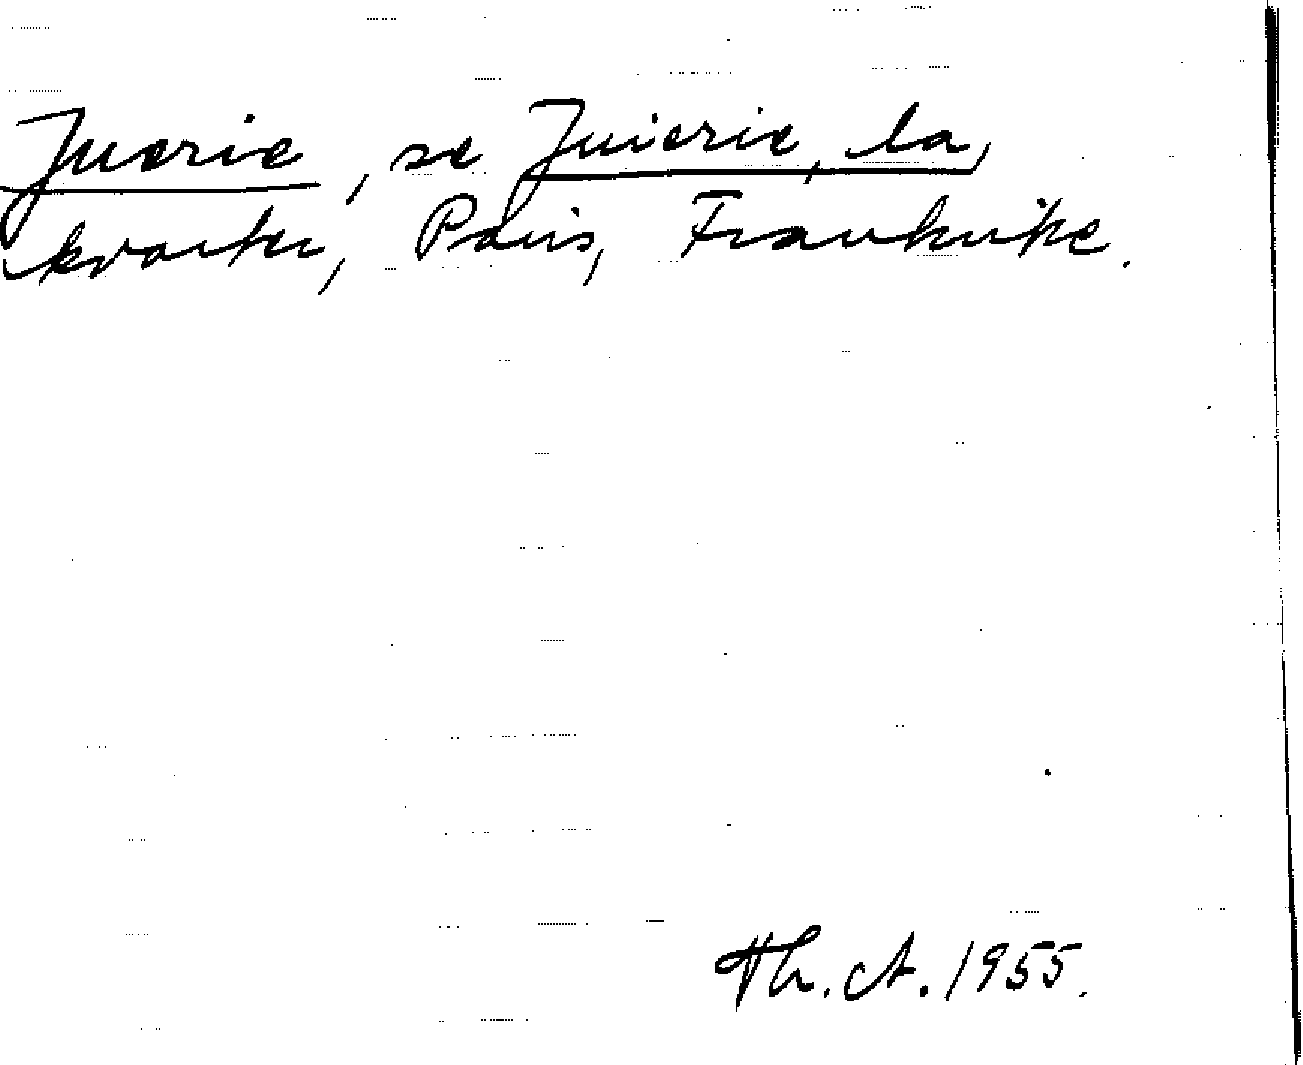 Juerie, se Juierie, la,
kvarter, Paris, Frankrike.
Th. A. 1955.